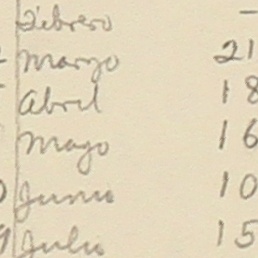 Febrero —
Marzo 21
Abril 18
Mayo 16
Junio 10
Julio 15